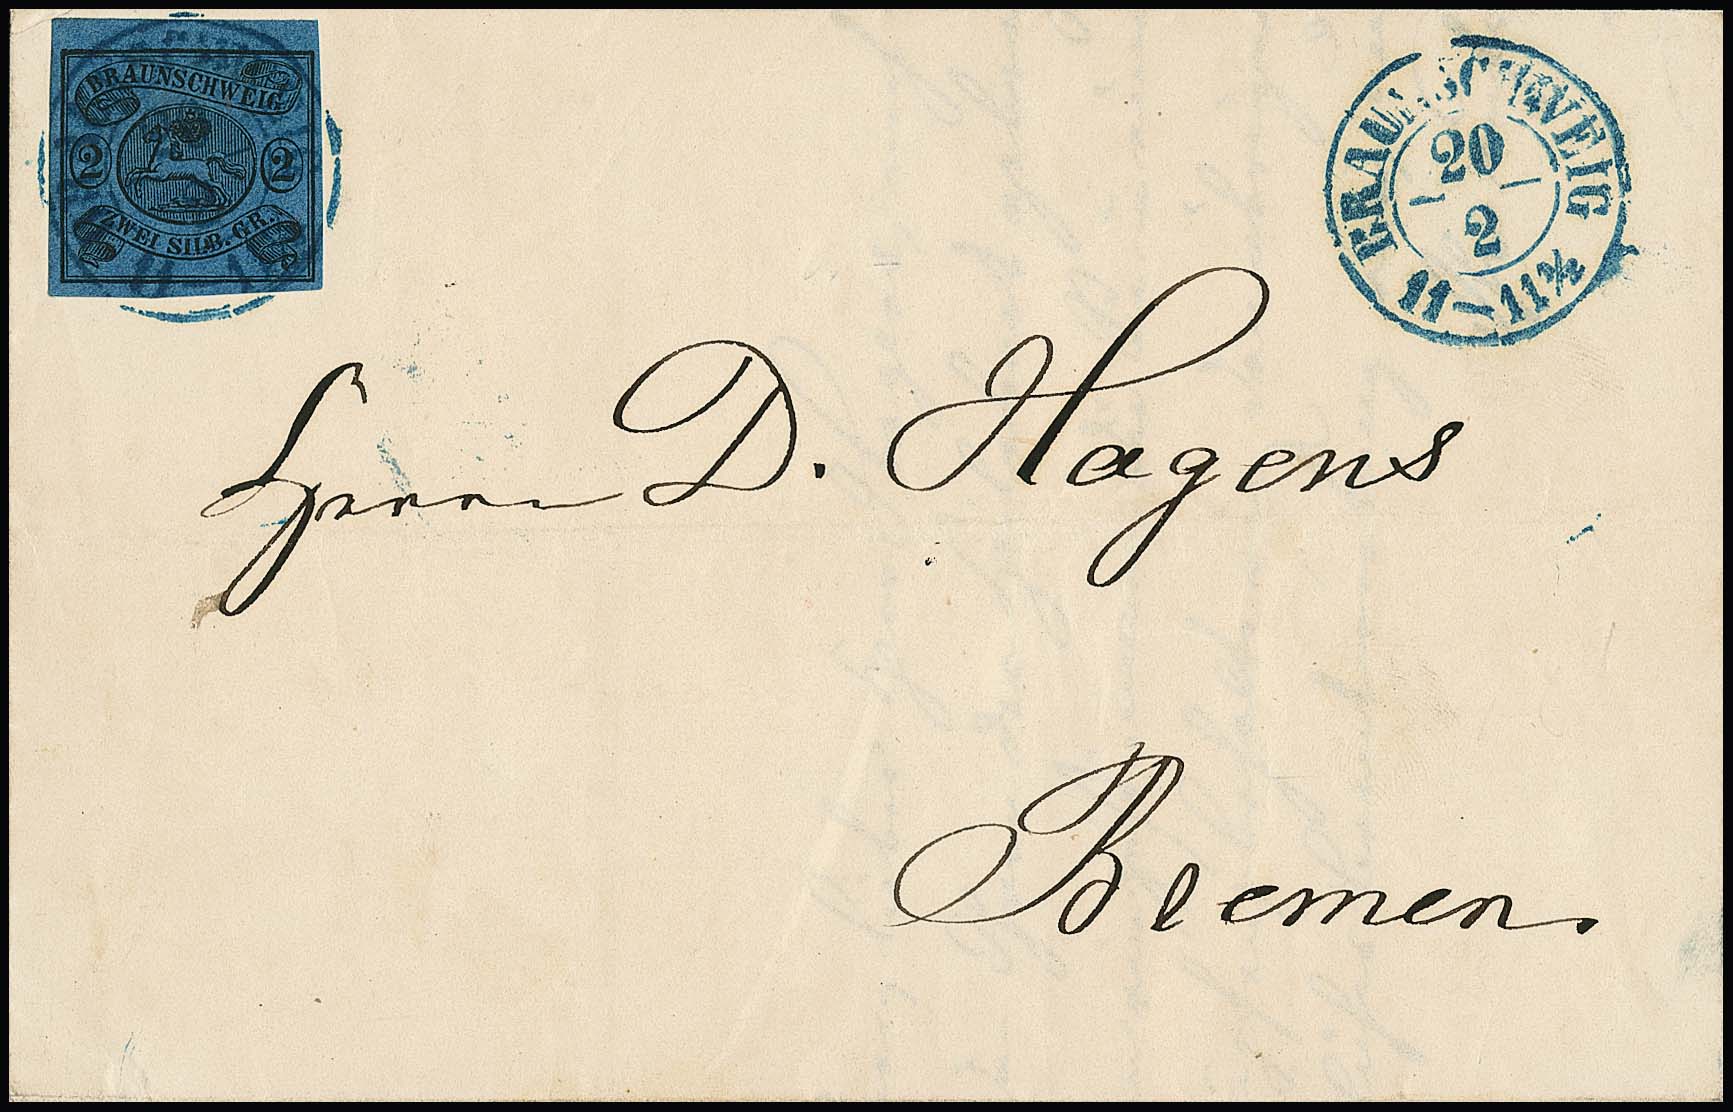 BRAUNSCHWEIG
2 2
ZWEI SILB. GR.
BRAUNSCHWEIG
20
2
11-11½
Herrn D. Hagens
Bremen.